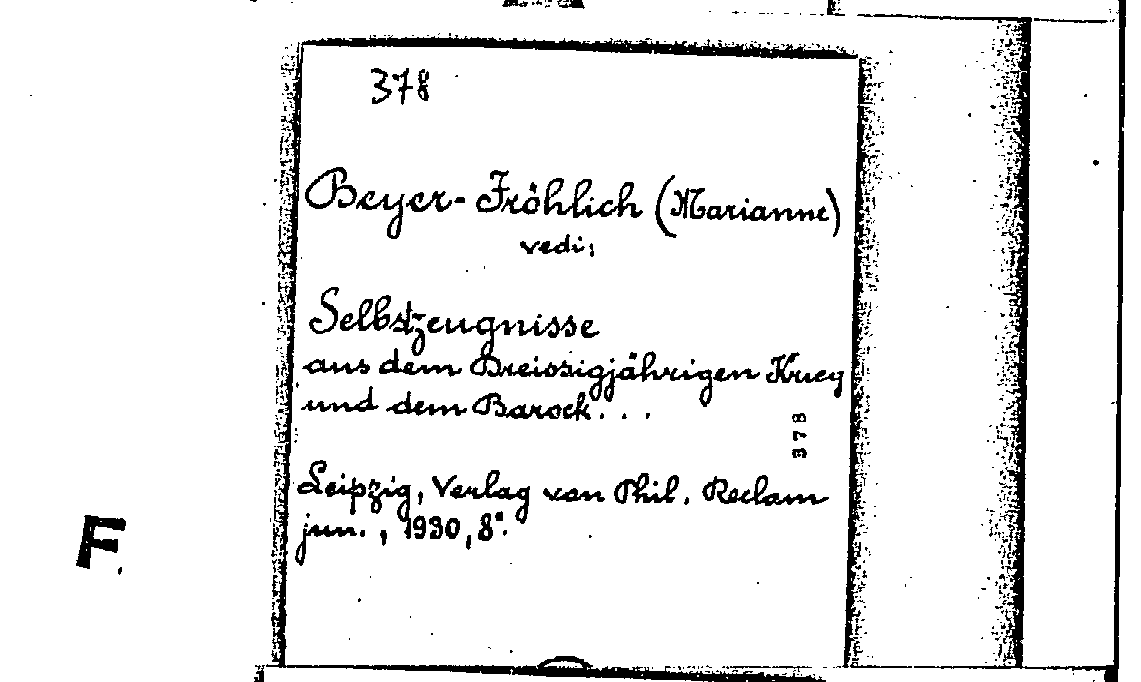 378
Beyer-Fröhlich (Marianne)
vedi;
Selbstzeugnisse
aus dem Dreissigjährigen Krieg
und dem Barock. . .
378
Leipzig, Verlag von Phil. Reclam
jun., 1930, 8°.
F